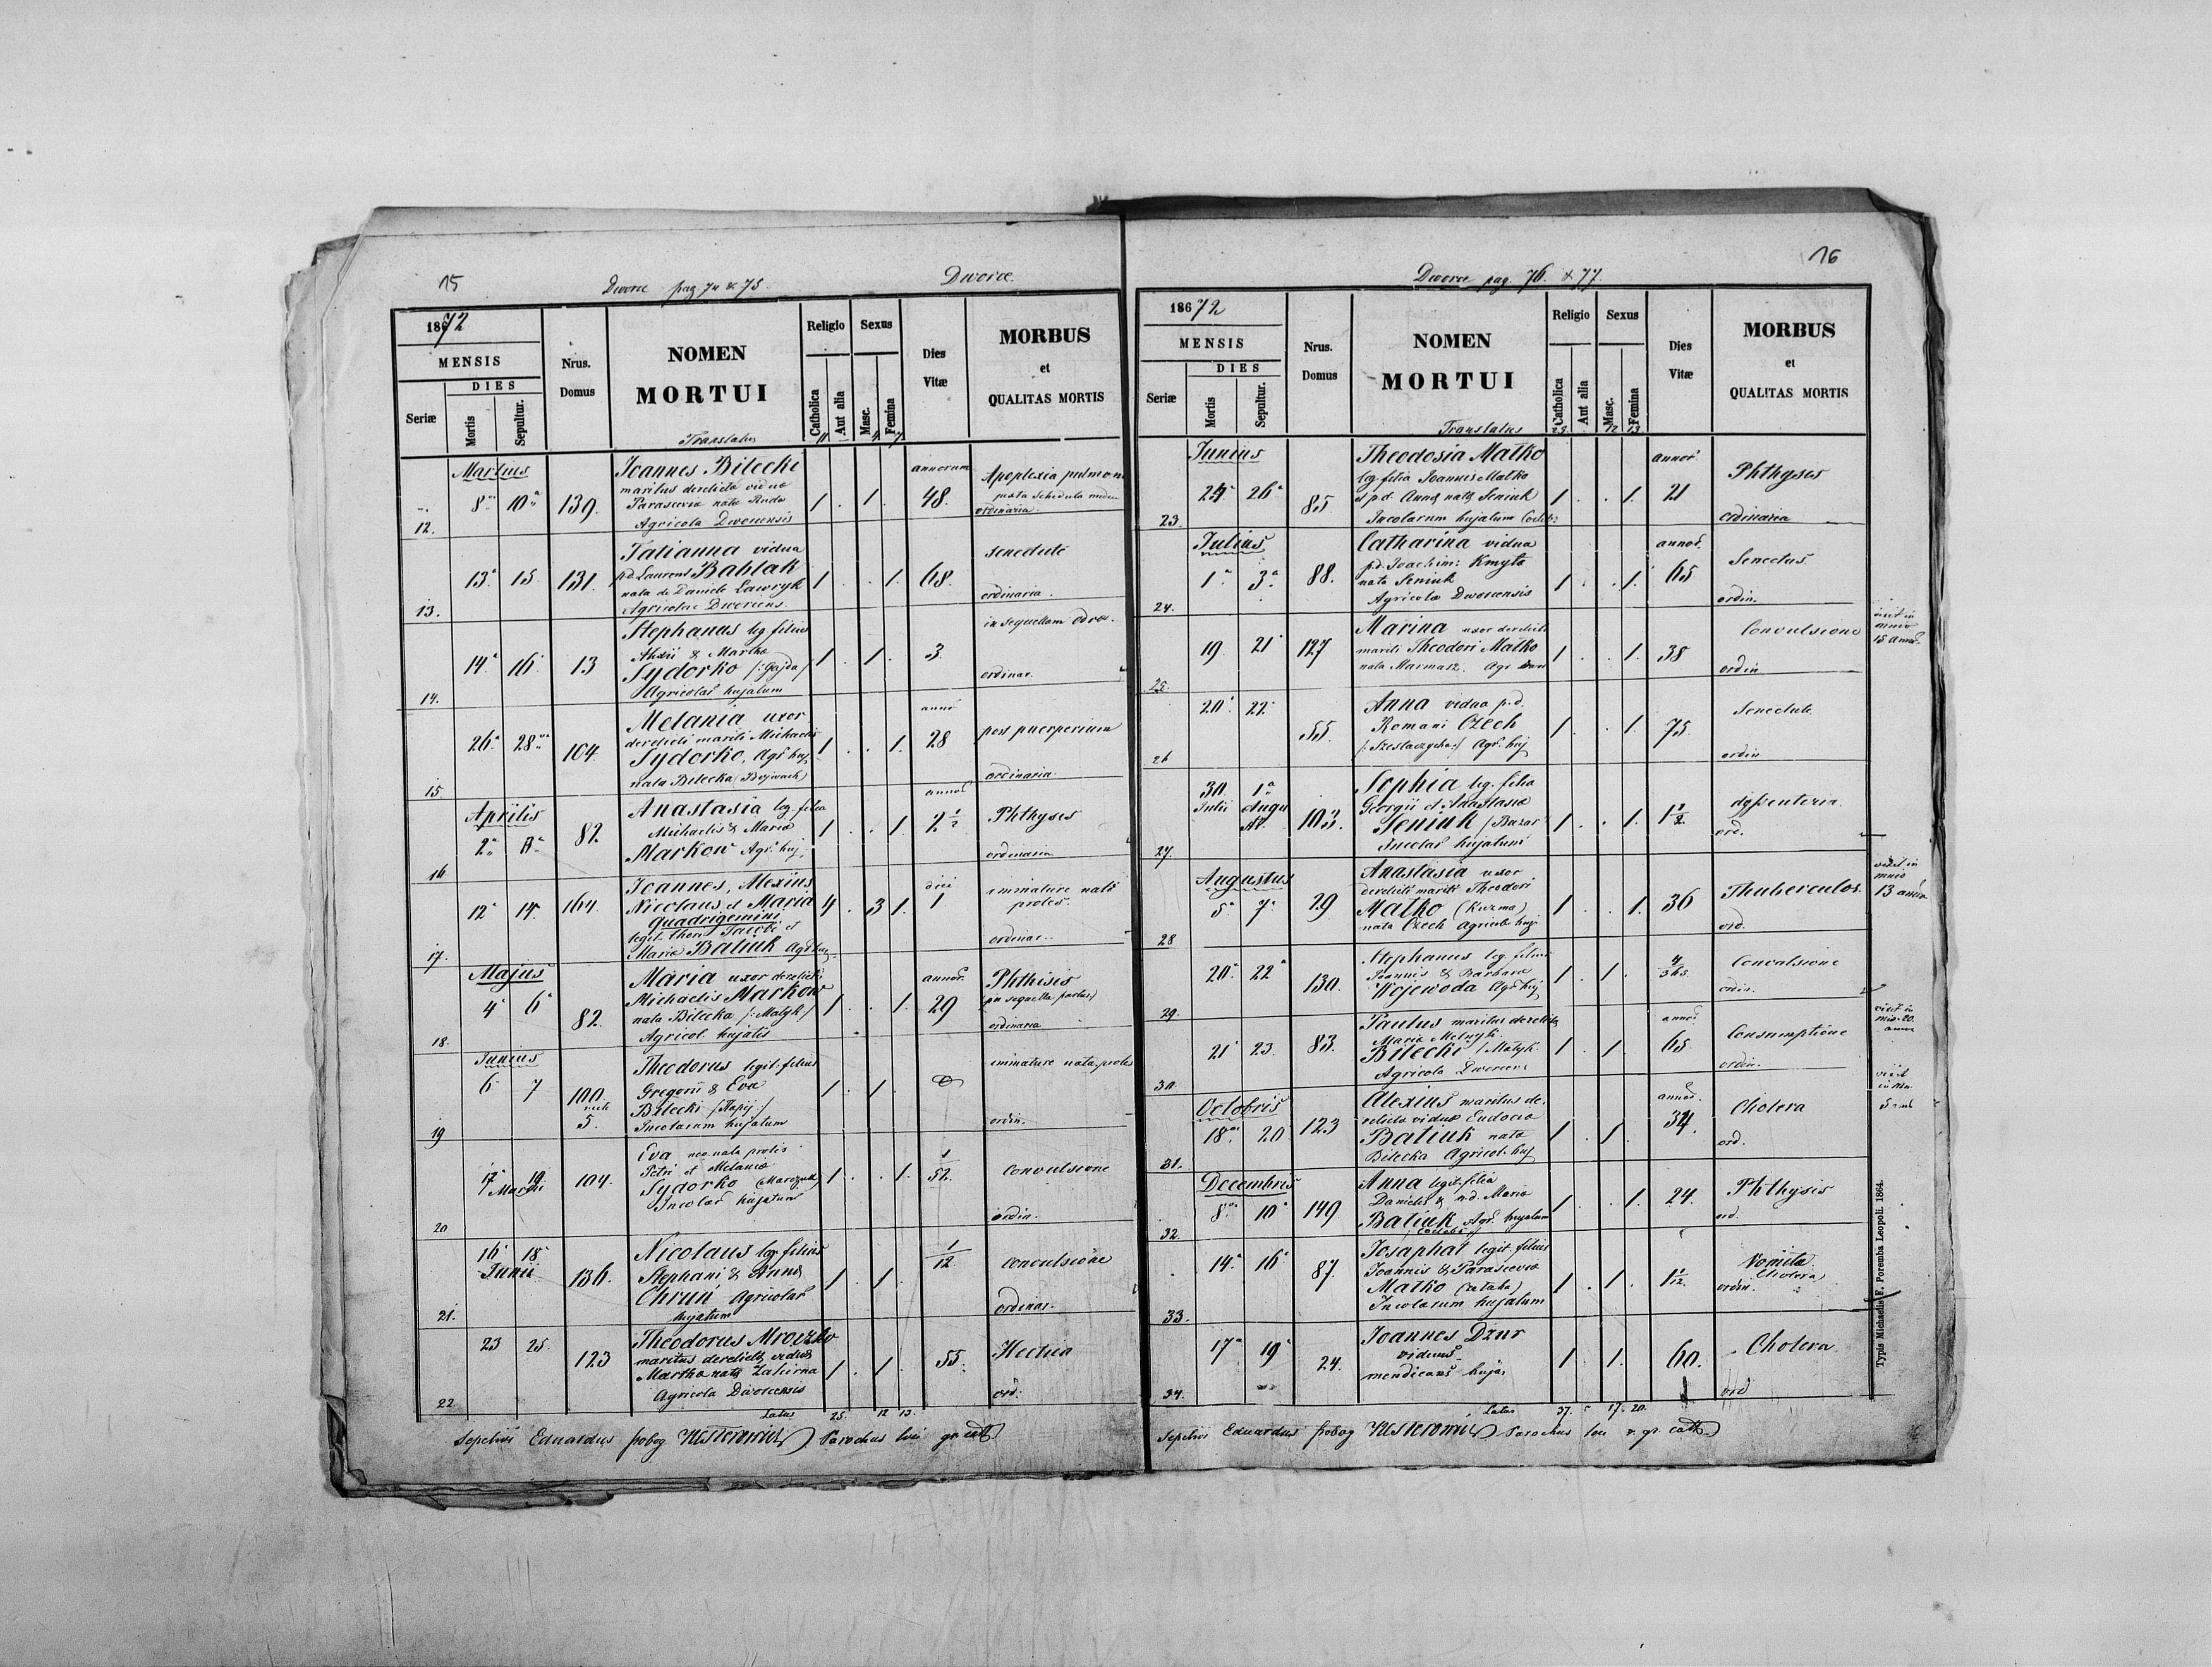 15
Dworce pag 74 & 75.
Dworce
1872
MENSIS
DIES
Seriæ
Mortis
Sepultur.
Nrus.
Domus
NOMEN
MORTUI
Religio
Catholica
Aut alia
Sexus
Masc.
Femina
Dies
Vitæ
MORBUS
et
QUALITAS MORTIS
Translatus 11 4 7
Martius
Joannes Bilecki
maritus derelicta vidua
Parascevia nata Ruda
Agricola Dworcensis
12. 8 10 139. 1 . 1 . annorum 48. Apoplexia pulmon
juxta schedula
ordinaria.
Tatianna vidua
p.d. Laurent Bablak
nata de Daniele Lawryk
Agricolae Dworcens.
13. 13 15 131. 1 . . 1. 68. senectute
ordinaria.
Stephanus leg. filius
Alexii & Martha
Sydorko /: Gajda /
Agricolar hujatum
14. 14 16 13 1 . 1 . 3. in sequellam
ordinar.
Melania uxor
derelicti mariti Michaelis
Sydorko, Agr. huj.
nata Bilecka
15 26 28 104. 1 . . 1. 28 post puerperium
ordinaria.
Aprilis
Anastasia leg. filia
Michaelis & Maria
Markow Agr. huj.
16 2 82. 1 . . 1. 2 1/2 Phthyses
ordinaria
Joannes, Alexius,
Nicolaus et Maria
Quadrigemini
legit. thori Jacobi et
Maria Batiuk Agr. huj.
17. 12 14 164. 4 . 3 1. 1 immature nati
proles.
ordinar.
Majus
Maria uxor derelicti
Michaelis Markow
nata Bilecka /: Matyk /
Agricol. hujatis
18. 4 6 82. 1 . . 1. 29 Phthisis
ordinaria
Junius
Theodorus legit. filius
Gregorii & Eva
Bilecki
Incolarum hujatum
19 6 7 100 5. 1 . 1 . immature nata proles
ordin.
Eva neonata prolis
Petri et Melania
Sydorko
Incolar hujatum
20 17 19 Martii 104. 1 . . 1. 1/52. Convulsione
ordin.
Nicolaus leg. filius
Stephani & Anna
Chrun Agricolar
hujatum
21. 16 18 Junii 136. 1 . 1 . 1/12 convulsione
ordinar.
Theodorus Mroczko
maritus derelicta vidua
Martha nata
Agricola Dworcensis
22 23 25. 123 1 . 1 . 55. Hectica
ord.
Latus 25. 12 13.
Sepelivi Eduardus Parochus loci gr. cath.
16
Dworce pag. 76. & 77.
1872
MENSIS
DIES
Seriæ
Mortis
Sepultur.
Nrus.
Domus
NOMEN
MORTUI
Religio
Catholica
Aut alia
Sexus
Masc.
Femina
Dies
Vitæ
MORBUS
et
QUALITAS MORTIS
Translatus 25. 12 13.
Junius
Theodosia Matko
leg. filia Joannis Matko
et p.d. Anna nata Seniuk
Incolarum hujatum
23. 24 26 85. 1 . . 1. 21 Phthyses
ordinaria
Julius
Catharina vidua
p.d. Joachim: Kmyta
nata Seniuk
Agricola Dworcensis
24. 1 3 88. 1 . . 1. 65 Senectus.
ordin.
Marina uxor derelicti
mariti Theodori Matko
nata Marmasz. Agr.
25. 19. 21 127 1 . . 1. 38 Convulsione
ordin
vixit in
15 annor.
Anna vidua p.d.
Romani Czech
Agr. huj
26 20 22 55. 1 . . 1. 75. Senectute
ordin
Sophia leg. filia
Georgii et Anastasia
Seniuk
Incolar hujatum
27. 30 Julii 1 Augu 103. 1 . . 1. 1 1/2. dyssenteria.
ord.
Augustus
Anastasia uxor
derelicti mariti Theodori
Matko (Kuzma)
nata Czech Agricol. huj.
28 5 7 29 1 . . 1. 36 Thuberculos.
ord.
vixit in
13 annor
Stephanus leg. filius
Joannis & Barbara
Wojewoda Agr. huj
29. 20 22 130. 1 . 1 . 4/365. Convulsione
ordin.
Paulus maritus derelicta
Maria Melnyk
Bilecki /Matyk.
Agricola Dworcens
30. 21 23. 83. 1 . 1 . 65. Consumptione
ordin.
vixit in
Octobris
Alexius maritus de-
relicta vidua Eudocia
Batiuk nata
Bilecka Agricol. huj
31. 18 20 123 1 . 1 . 34. Cholera
ord.
vixit
Decembris
Anna legit. filia
Danielis & n.d. Maria
Batiuk Agr. hujatum
32. 8 10 149 1 . . 1. 24. Phthysis
ord.
Josaphat legit. filius
Joannis & Parascevia
Matko
Incolarum hujatum
33. 14 16 87. 1 . 1 . 1 1/12. Vomita
Cholera
ordin.
Joannes Dznr
viduus
mendicans huja.
34. 17 19 24. 1 1. 60. Cholera
ord
Latus 37. 17. 20.
Sepelivi Eduardus Parochus loci r. gr. cath.
Typis Michaelis F. Poremba Leopoli. 1864.